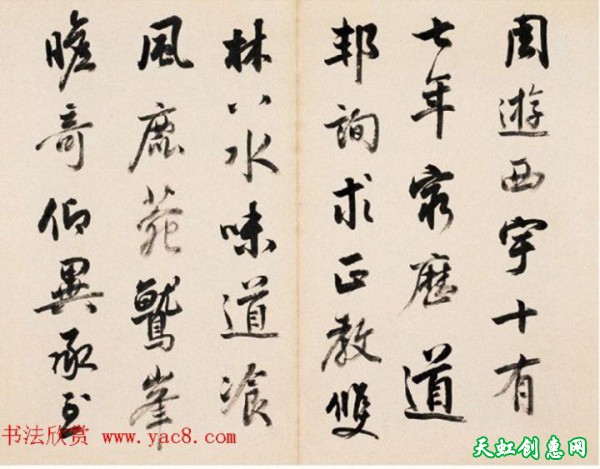 周遊西宇十有
七年窮歷道
邦詢求正教雙
林八水味道飡
風鹿菀鷲峯
瞻奇仰異承至
书法欣赏 www.yac8.com
天虹创惠网